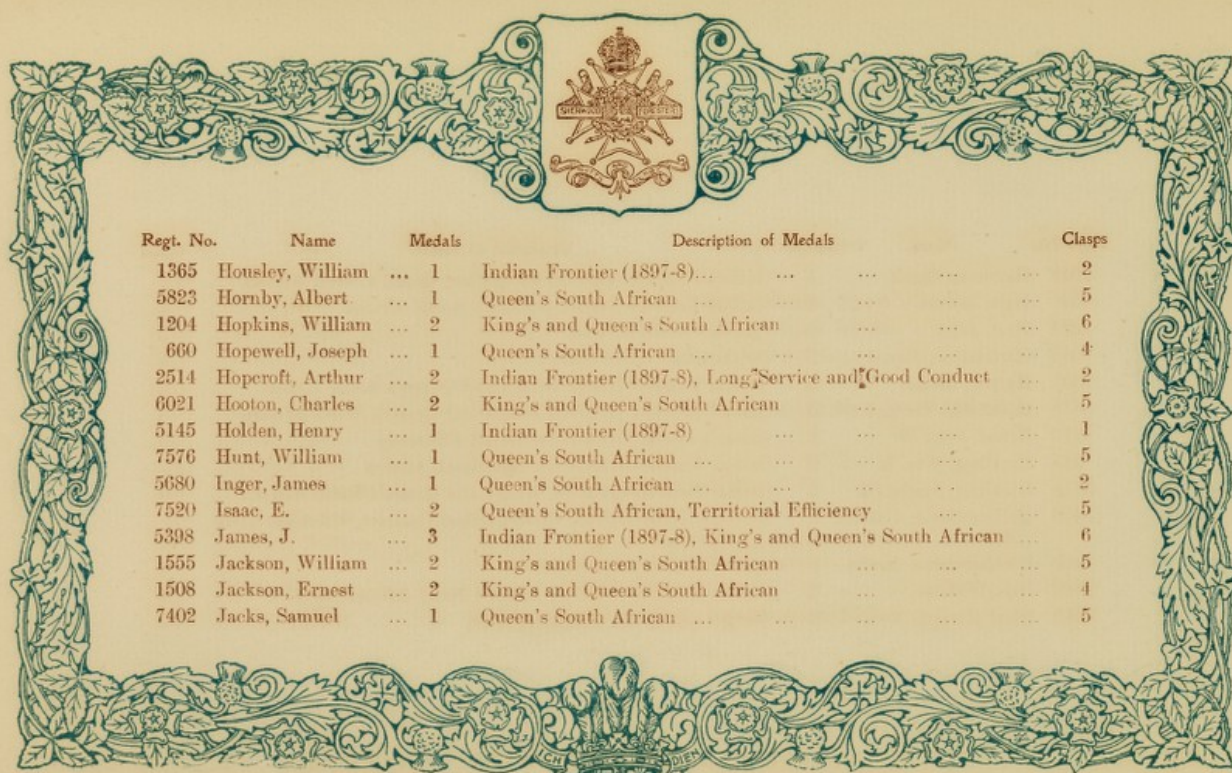 SHERWOOD FORESTERS
Regt. No. Name Medals Description of Medals Clasps
1365 Housley, William ... 1 Indian Frontier (1897-8)... ... ... ... ... 2
5823 Hornby, Albert ... 1 Queen's South African ... ... ... ... ... 5
1204 Hopkins, William ... 2 King's and Queen's South African ... ... ... 6
660 Hopewell, Joseph ... 1 Queen's South African ... ... ... ... ... 4
2514 Hopcroft, Arthur ... 2 Indian Frontier (1897-8), Long Service and Good Conduct ... 2
6021 Hooton, Charles ... 2 King's and Queen's South African ... ... ... 5
5145 Holden, Henry ... 1 Indian Frontier (1897-8) ... ... ... ... 1
7576 Hunt, William ... 1 Queen's South African ... ... ... ... ... 5
5680 Inger, James ... 1 Queen's South African ... ... ... ... ... 2
7520 Isaac, E. ... 2 Queen's South African, Territorial Efficiency ... ... 5
5398 James, J. ... 3 Indian Frontier (1897-8), King's and Queen's South African ... 6
1555 Jackson, William ... 2 King's and Queen's South African ... ... ... 5
1508 Jackson, Ernest ... 2 King's and Queen's South African ... ... ... 4
7402 Jacks, Samuel ... 1 Queen's South African ... ... ... ... ... 5
CH DIEN